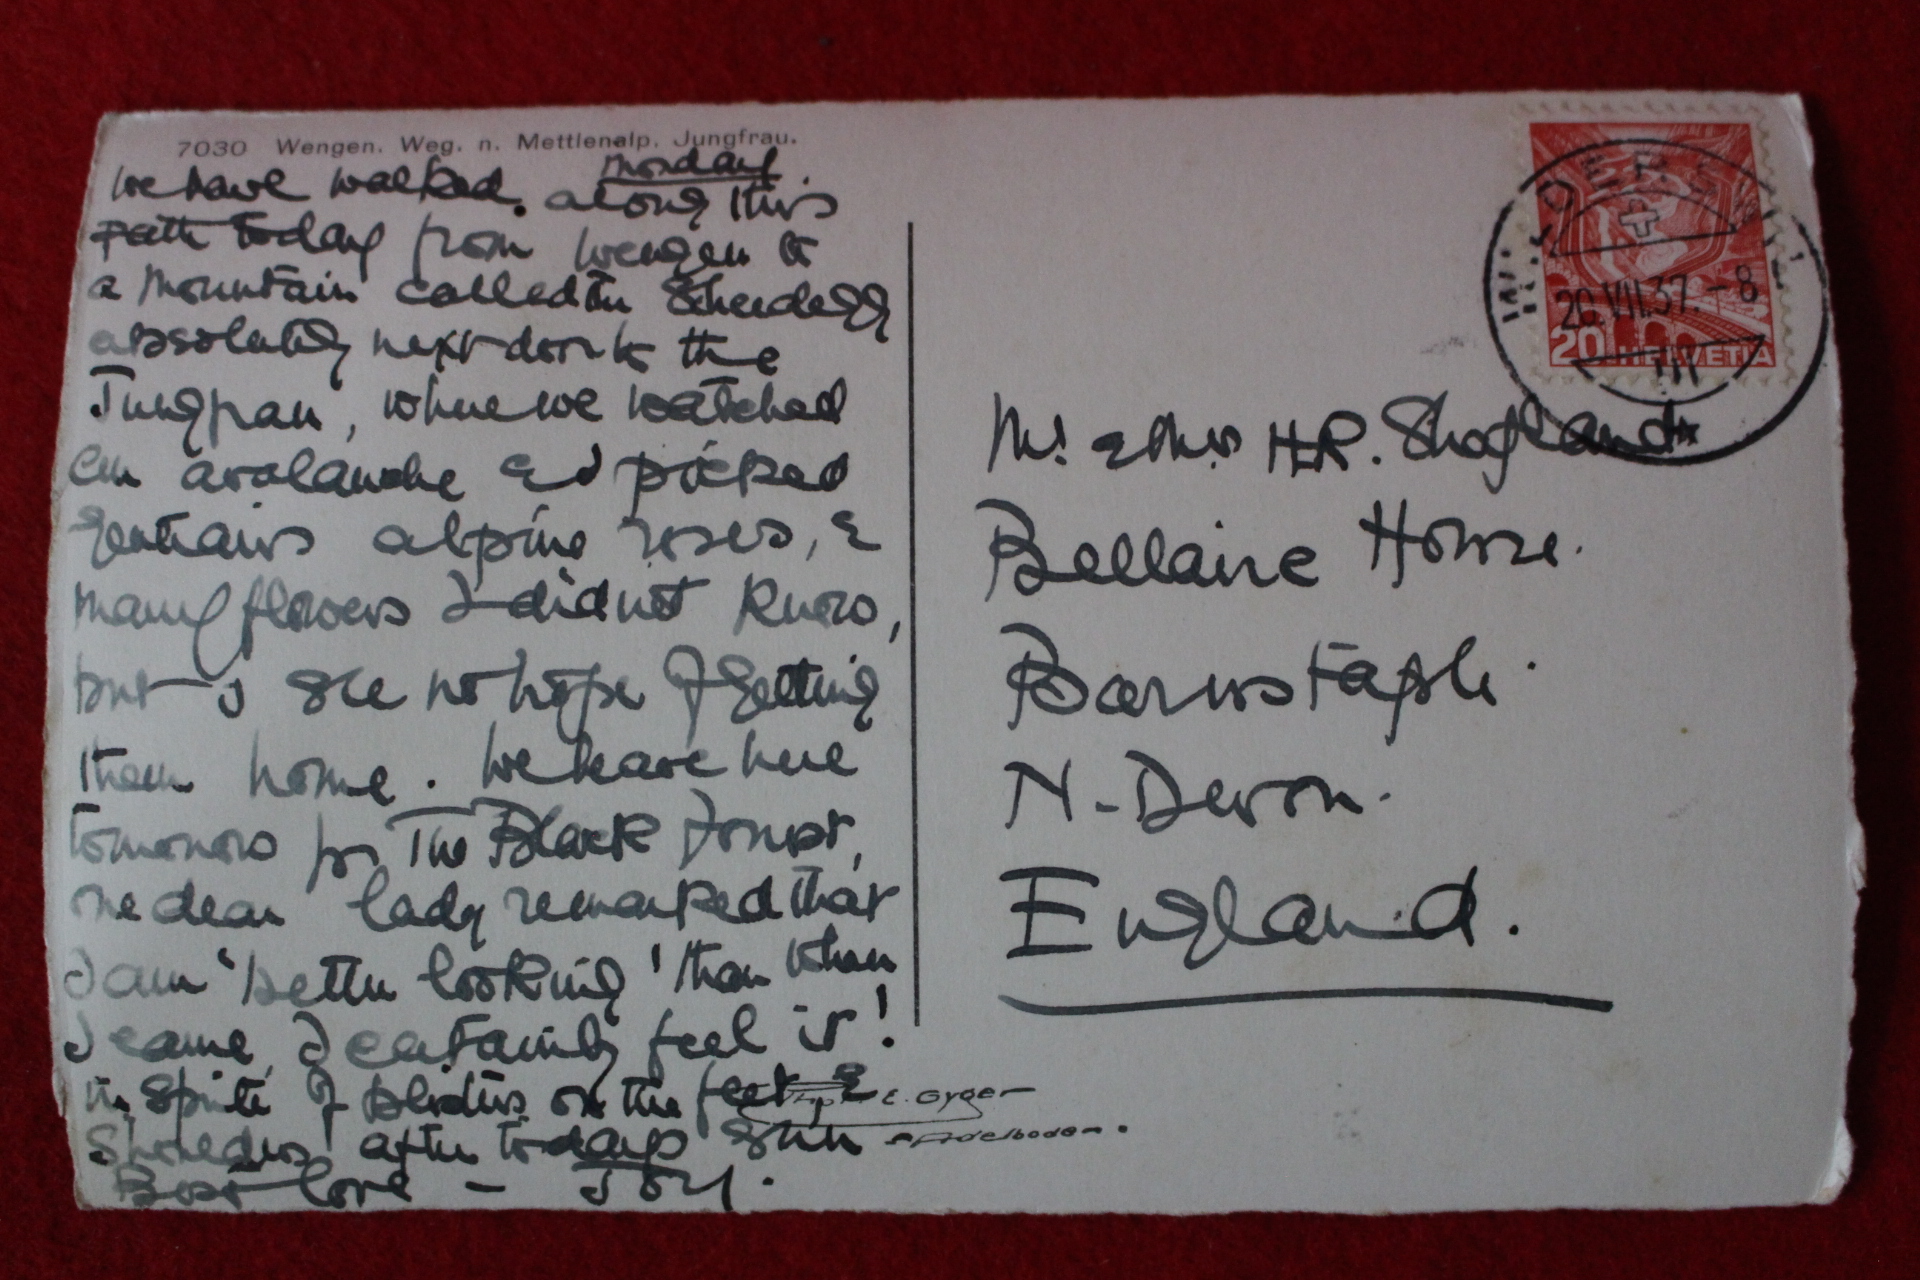 7030 Wengen. Weg. n. Mettlenalp. Jungfrau.
Monday
We have walked. along this
path today from Wengen to
a mountain called the Scheidegg
absolutely next door to the
Jungfrau, where we watched
an avalanche & picked
gentians alpine roses, &
many flowers I did not know,
but I see no hope of getting
them home. We leave here
tomorrow for The Black Forest,
one dear lady remarked that
I am 'better looking' than when
I came, I certainly feel it!
in spite of blisters on the feet, &
shoulders after todays sun
Best love - Joy.
WILDERSWIL
20.VII.37.-8
20 HELVETIA
Mr. & Mrs H.R. Shogland
Bellaire House.
Barnstaple.
N-Devon.
England.
Phot. E. Gyger
Adelboden.